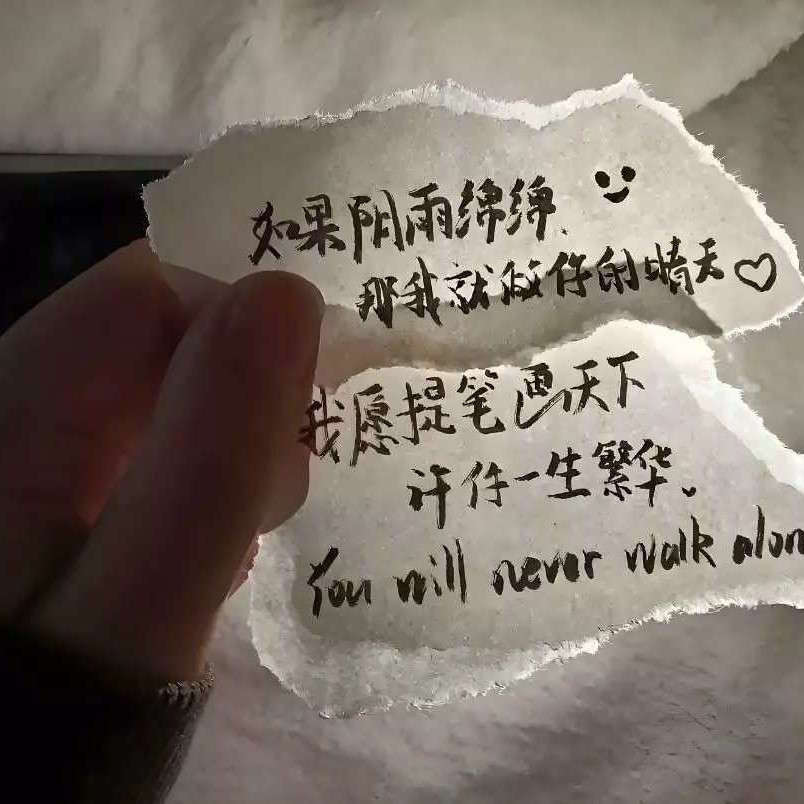 如果阴雨绵绵、
那我就做你的晴天♡
我愿提笔画天下
许你一生繁华。
You will never walk alon